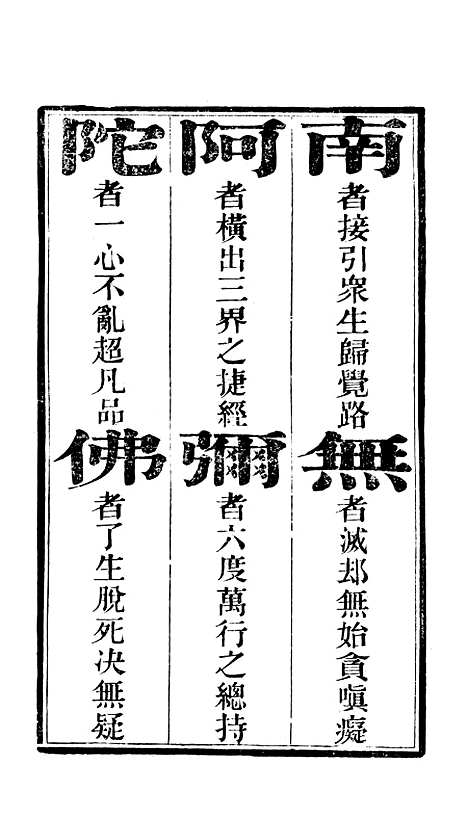 南者接引眾生歸覺路無者滅却無始貪嗔癡
阿者橫出三界之捷經彌者六度萬行之總持
陀者一心不亂超凡品佛者了生脫死決無疑